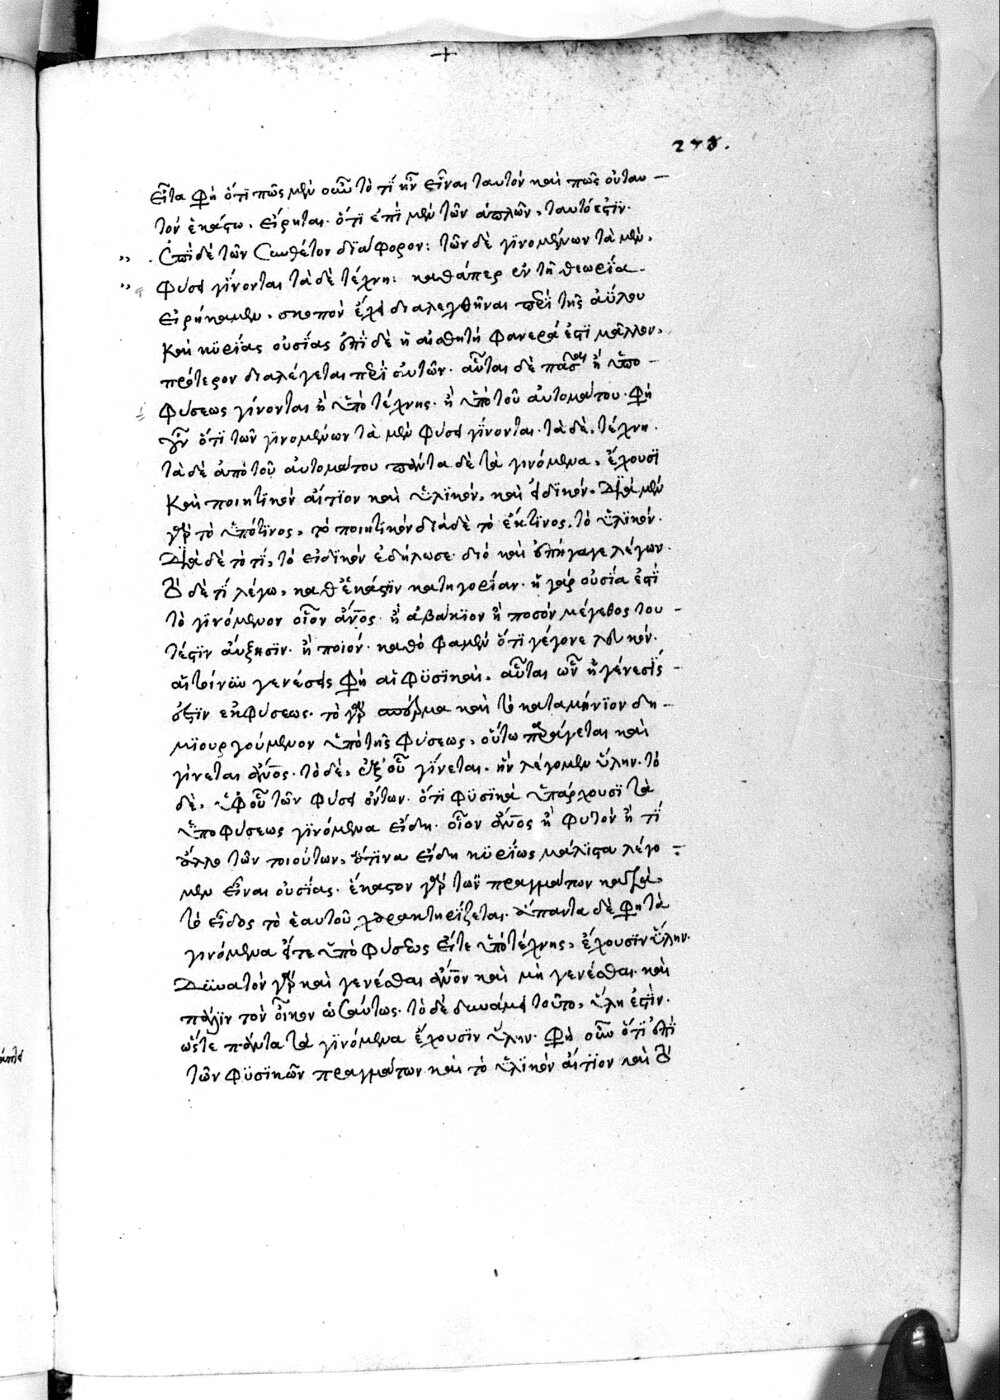 +
εἶτα φη ὅτι πῶς μὲν οὖν τὸ τί ἦν εἶναι ταυτὸν καὶ πῶς οὐ ταυ –
τὸν ἑκάστω. εἴρηται. ὅτι ἐπὶ μὲν τῶν ἁπλῶν, ταυτό ἐστιν.
ἐπὶ δὲ τῶν συνθέτον διάφορον: τῶν δὲ γινομένων τὰ μὲν,
φύσει γίνονται τὰ δὲ τέχνη: καθάπερ ἐν τῆ θεωρία
εἰρήκαμεν. σκοπὸν ἔχει διαλεχθῆναι περὶ τῆς ἀΰλου
καὶ κυρίας οὐσίας ἐπεὶ δὲ ἡ αἰσθητὴ φανερά ἐστι μᾶλλον,
πρότερον διαλέγεται περὶ αὐτῶν. αὗται δὲ πᾶσαι ἢ ὑπο –
φύσεως γίνονται ἢ ὑπὸ τέχνης. ἢ ὑπὸ τοῦ αὐτομάτου. φη
γοῦν ὅτι τῶν γινομένων τὰ μὲν φύσει γίνονται. τὰ δὲ, τέχνη.
τὰ δὲ ἀπὸ τοῦ αὐτομάτου πάντα δὲ τὰ γινόμενα, ἔχουσι
καὶ ποιητικὸν αἴτιον καὶ ὑλικόν, καὶ εἰδικόν. διὰ μὲν
γὰρ τὸ ὑπότινος, τὸ ποιητικὸν διὰ δὲ τὸ ἔκτινος. τὸ ὑλικόν.
διὰ δὲ τὸ τί, τὸ εἰδικὸν ἐδήλωσε. διὸ καὶ ἐπήγαγε λέγων.
τὸ δὲ τὶ λέγω, καθ' ἑκάστην κατηγορίαν. ἢ γὰρ οὐσία ἐστὶ
τὸ γινόμενον οἷον ἄνος. ἢ ἀβάκιον ἢ ποσόν μέγεθος του –
τέστιν αὔξησιν. ἢ ποιόν. καθὸ φαμὲν ὅτι γέγονε λευκόν.
αἱ γενέσεις φη αἱ φυσικαὶ. αὗται ὧν ἡ γένεσίς –
ἐστιν ἐκ φύσεως. τὸ γὰρ σπέρμα καὶ τὸ καταμήνιον δη –
μιουργούμενον ὑπὸ τῆς φύσεως, οὕτω παράγεται καὶ
γίνεται ἄνος. τὸ δὲ, ἐξ οὗ γίνεται. ἣν λέγομεν ὕλην. τὸ
δὲ, ὑφ' οὗ τῶν φύσει ὄντων. ὅτι φυσικὰ ὑπάρχουσι τὰ
ὑπο φύσεως γινόμενα εἴδη. οἷον ἄνος ἢ φυτὸν ἢ τὶ
ἄλλο τῶν τοιούτων, ἅτινα εἴδη κυρίως μάλιστα λέγο
μεν εἶναι οὐσίας. ἕκαστον γὰρ τῶν πραγμάτων κατὰ
τὸ εἶδος τὸ ἑαυτοῦ χαρακτηρίζεται. ἅπαντα δὲ φη τὰ
γινόμενα εἴτε ὑπὸ φύσεως εἴτε ὑπὸ τέχνης, ἔχουσιν ὕλην.
δυνατὸν γὰρ καὶ γενέσθαι ἄνον καὶ μὴ γενέσθαι. καὶ
πάλιν τὸν οἶκον ὡσαύτως. τὸ δὲ δυνάμει τοῦτο, ὕλη ἐστίν.
ὥστε πάντα τὰ γινόμενα ἔχουσιν ὕλην. φη οὖν ὅτι ἐπὶ
τῶν φυσικῶν πραγμάτων καὶ τὸ ὑλικὸν αἴτιον καὶ τὸ